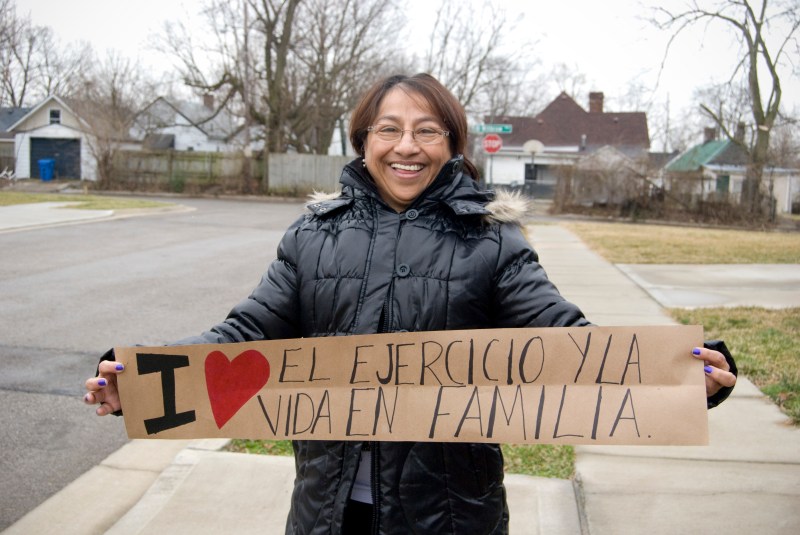 I ❤ EL EJERCICIO Y LA
VIDA EN FAMILIA.